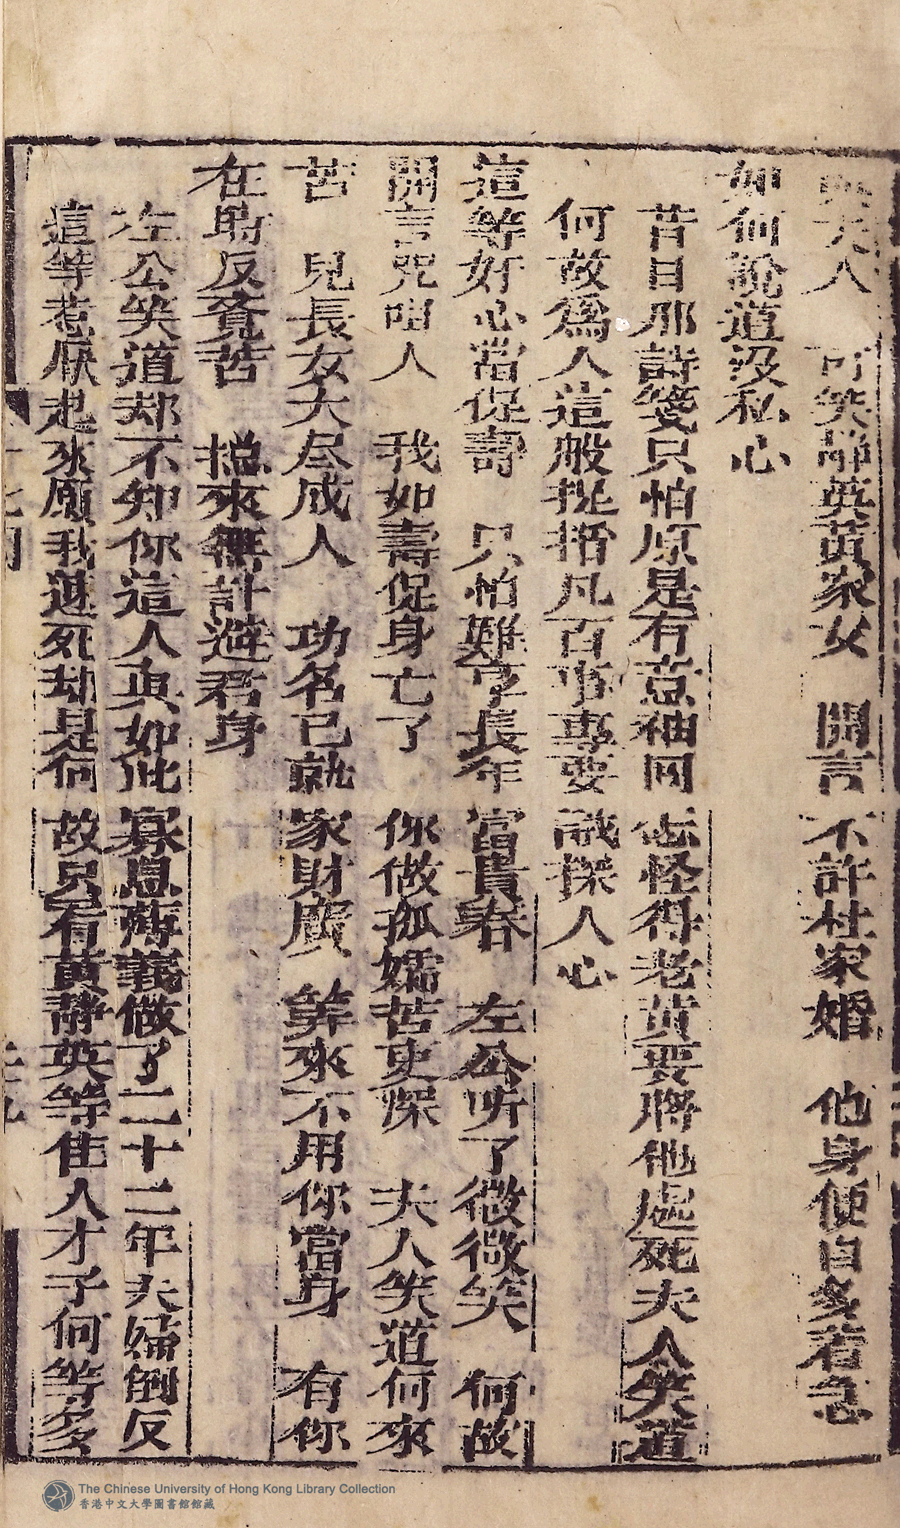 夫人　可笑那英黃家女　開言不許杜家婚　他身便自多着急
如何說道沒私心
昔日那詩箋只怕原是有意袖回　怪得老黃要將他處死夫人笑道
何故爲人這般捉搯凡百事專要識探人心
這等好心當促壽　只怕難享長年富貴春　左公听了微微笑　何故
開言咒咀人　我如壽促身亡了　你做孤孀苦更深　夫人笑道何來
苦　兒長女大尽成人　功名已就家財廣　算來不用你當身　有你
在時反覔苦　搃來無計避君身
左公笑道却不知你這人真如此寡恩薄義做了二十二年夫婦倒反
這等惹厭起來願我速死却是何故只看黃靜英等佳人才子何等多
The Chinese University of Hong Kong Library Collection
香港中文大學圖書館館藏